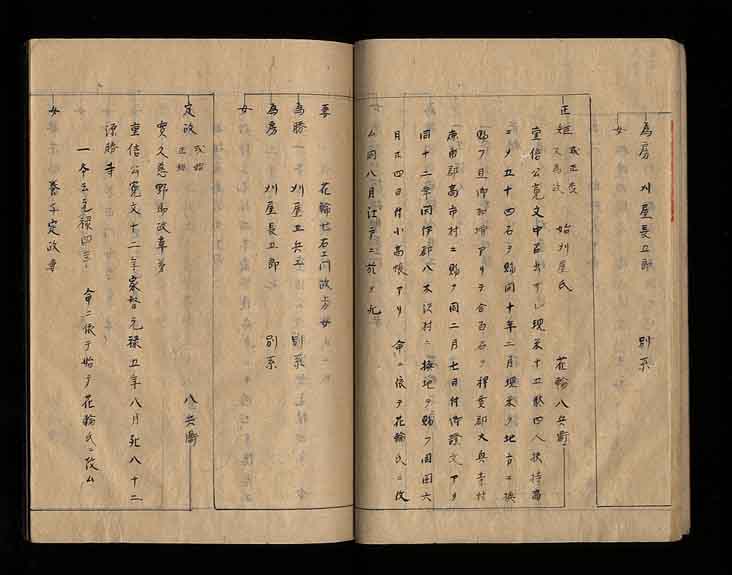 為房 刈屋長五郎 別系
女
正姫 或正受 又為政 始刈屋氏 花輪八兵衛
重信公寛文中召出サレ現米十五駄四人扶持高
ニメ五十四石ヲ賜同十年二月現米ヲ地方ニ換
賜フ且御加増アリテ合百石ヲ稗貫郡大興寺村
庫市郡高市村ニ賜フ同二月七日付御證文アリ
同十二年閉伊郡八木沢村ニ換地ヲ賜フ同国六
月廿四日付小高帳アリ 命ニ依テ花輪氏ニ改
ム同八月江戸ニ於テ死
妻 花輪七右エ門政方女
為勝 刈屋工兵エ 別系
為房 刈屋長五郎 別系
女
定政 或始 正 八兵衛
実久慈野 政章弟
重信公寛文十二年家督元禄五年八月死八十二
源勝寺
一本ニ元禄四年 命ニ依テ始テ花輪氏ニ改ム
女 養子定政妻